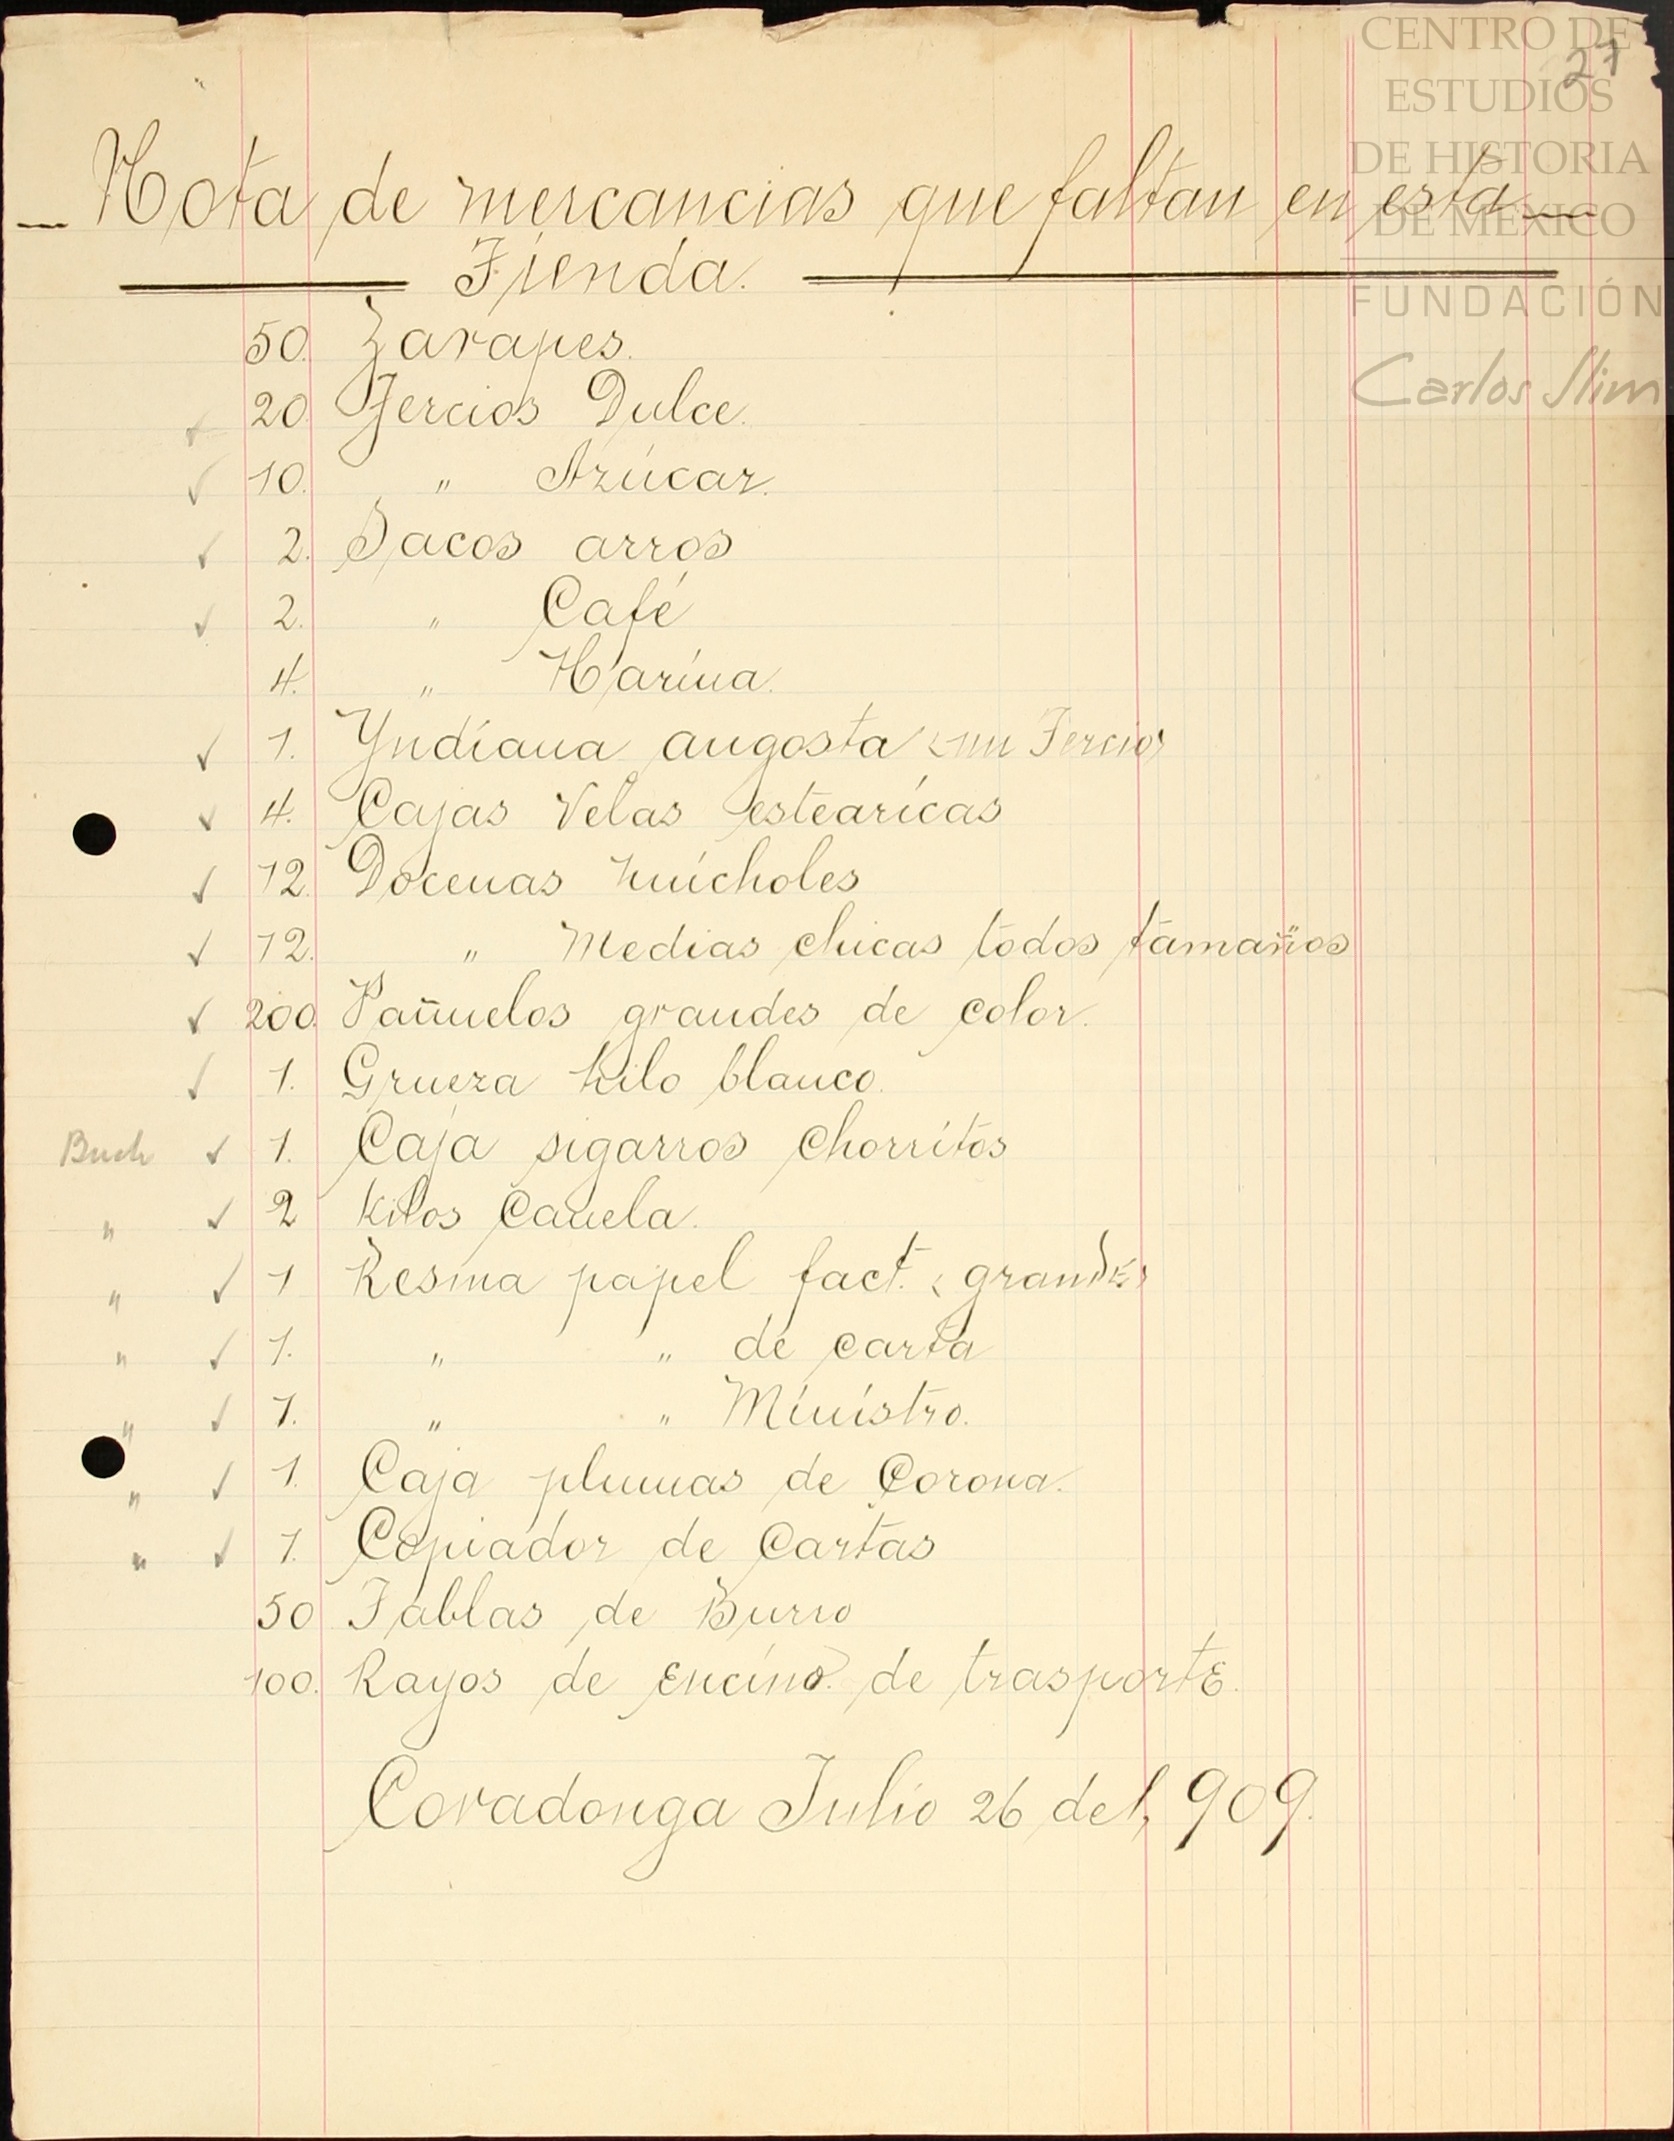 CENTRO DE
ESTUDIOS
DE HISTORIA
DE MÉXICO
FUNDACIÓN
Carlos Slim
27
Nota de mercancias que faltan en esta
Tienda.
50. Zarapes.
✓ 20. Tercios Dulce.
✓ 10. " Azúcar.
✓ 2. Sacos arros
✓ 2. " Café
4. " Harina.
✓ 1. Yndiana angosta (un Tercio)
✓ 4. Cajas Velas estearicas
✓ 12. Docenas huicholes
✓ 12. " Medias chicas todos tamaños
✓ 200. Pañuelos grandes de color.
✓ 1. Grueza hilo blanco.
✓ 1. Caja sigarros Chorritos
" ✓ 2 Kilos Canela.
" ✓ 1 Resma papel fact. (grande)
" ✓ 1. " " de carta
" ✓ 1. " " Ministro.
" ✓ 1. Caja plumas de Corona.
" ✓ 1. Copiador de Cartas
50 Tablas de Burro
100. Rayos de Encino. de trasporte.
Covadonga Julio 26 de 1,909.